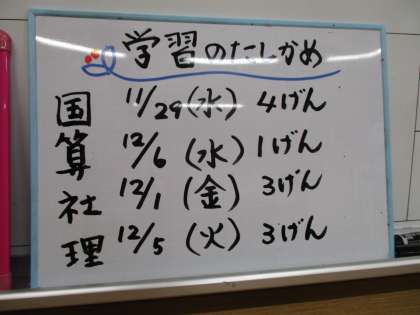 学習のたしかめ
国 11/29(水) 4げん
算 12/6(水) 1げん
社 12/1(金) 3げん
理 12/5(火) 3げん